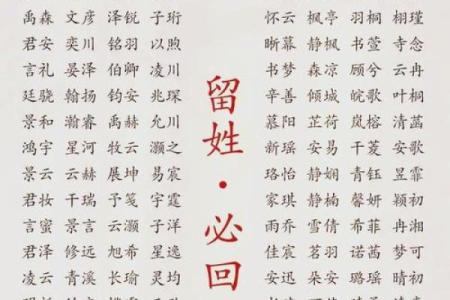 禹森 文彦 泽锐 子珩
君安 奕川 铭羽 以煦
言礼 晏泽 伯卿 凌川
廷骁 翰扬 钧安 兆琛
景和 瀚睿 禹赫 允川
鸿宇 星河 牧云 灏之
景云 云赫 展坤 易宸
君妆 干瑞 予笺 宇霆
言蜜 景言 云灏 子洋
君泽 修远 旭希 星逸
凌云 青溪 长瑜 灵均
留姓·必回
怀云 枫亭 羽桐 栩瑾
晰慕 静枫 书萱 寺念
书梦 森凉 顾兮 云冉
辛善 倾城 皖歌 叶桐
慕阳 芷荷 岚榕 清菡
新瑶 安易 干菱 安歌
珞怡 静娴 青钰 昱霏
家琪 静楠 馨妍 颖初
雨乔 雪倩 希菲 冉湘
佳宸 茗羽 诺菡 梦可
安迅 朵安 璐瑶 晴初